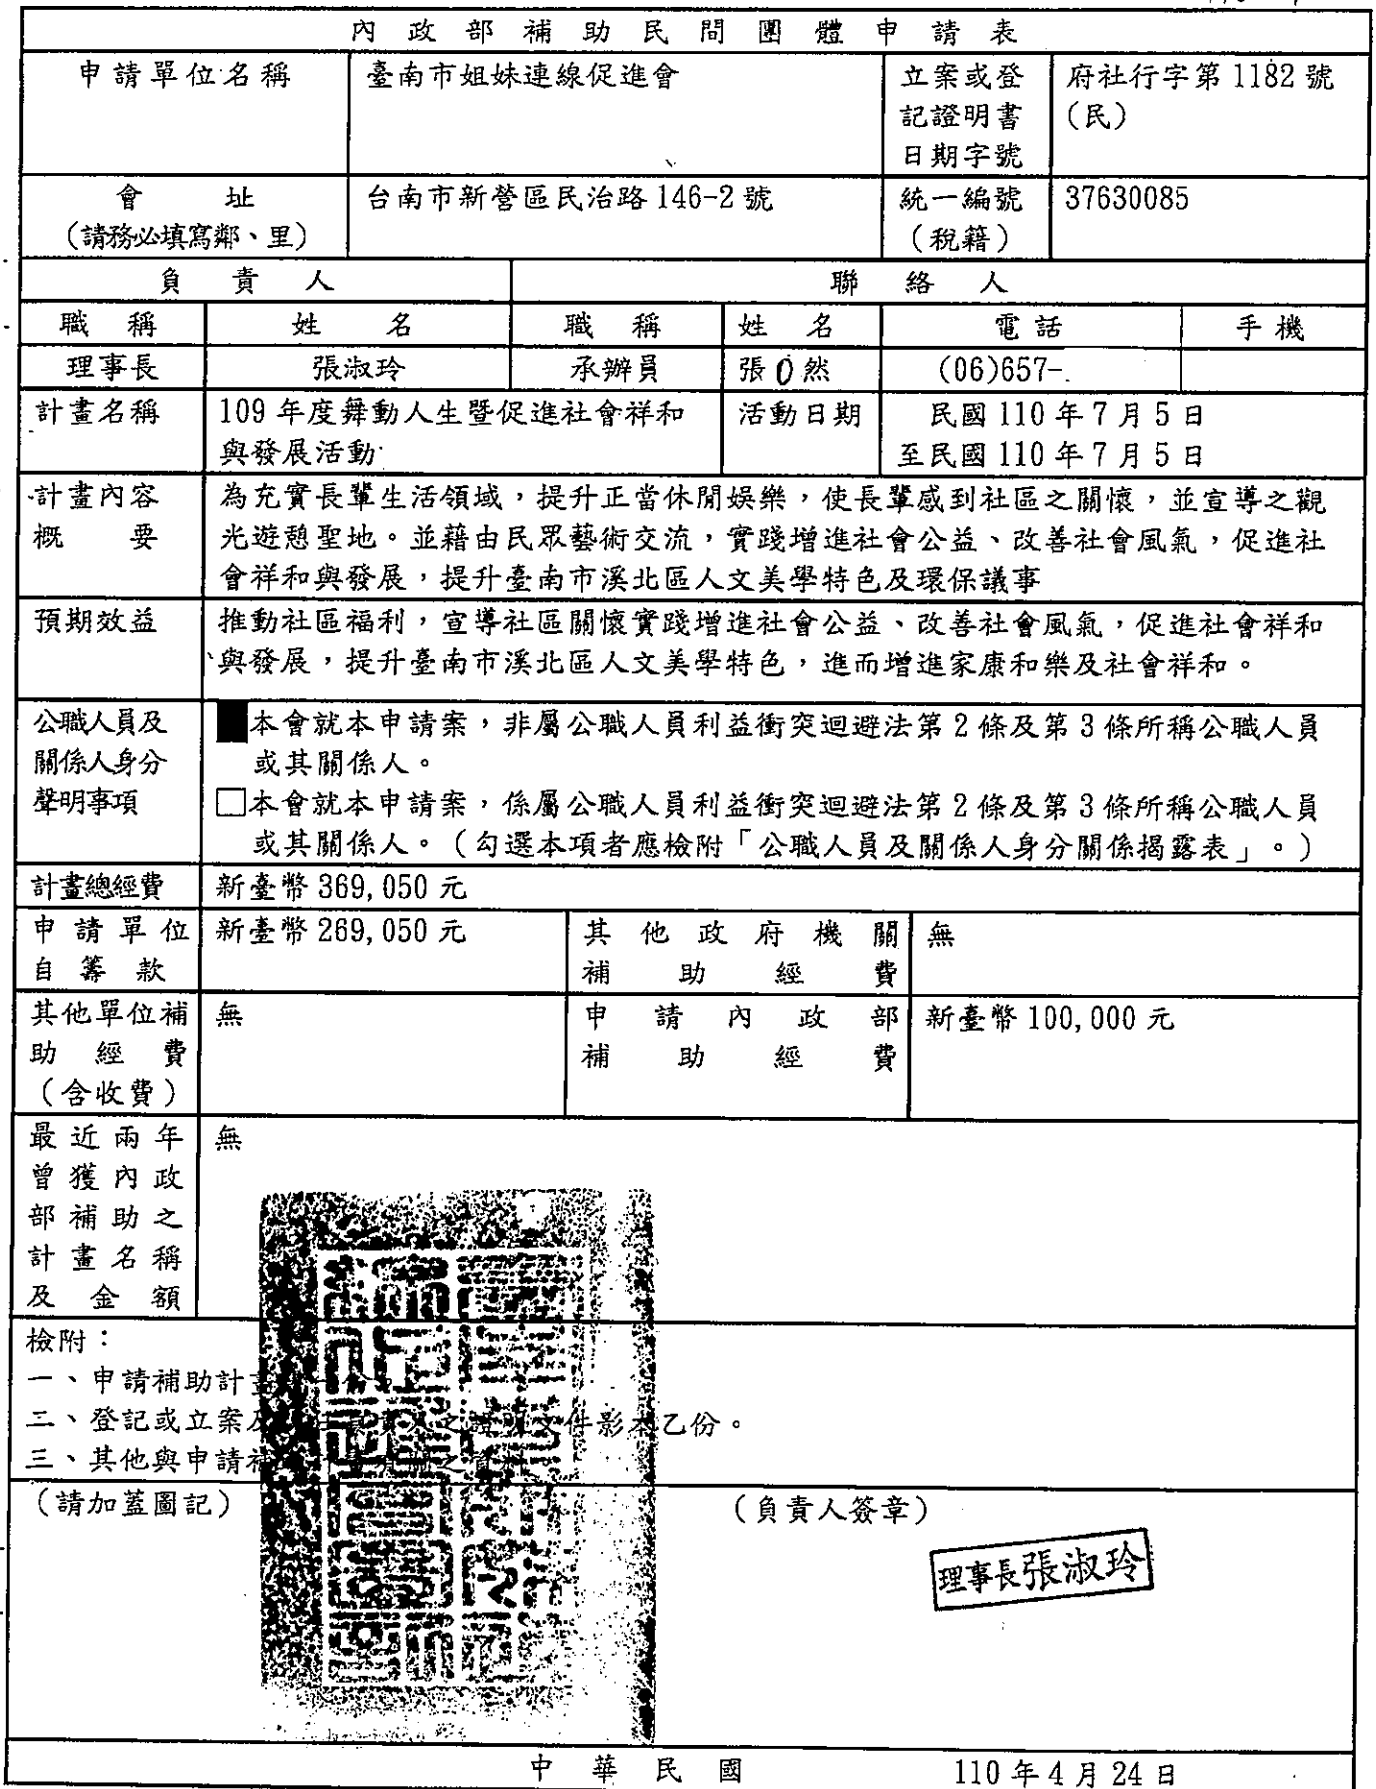 內政部補助民間團體申請表
申請單位名稱 臺南市姐妹連線促進會 立案或登 府社行字第 1182 號
記證明書 (民)
日期字號
會址 台南市新營區民治路 146-2 號 統一編號 37630085
(請務必填寫鄰、里) (稅籍)
負責人 聯絡人
職稱 姓名 職稱 姓名 電話 手機
理事長 張淑玲 承辦員 張0然 (06)657-
計畫名稱 109 年度舞動人生暨促進社會祥和 活動日期 民國 110 年 7 月 5 日
與發展活動 至民國 110 年 7 月 5 日
計畫內容 為充實長輩生活領域,提升正當休閒娛樂,使長輩感到社區之關懷,並宣導之觀
概要 光遊憩聖地。並藉由民眾藝術交流,實踐增進社會公益、改善社會風氣,促進社
會祥和與發展,提升臺南市溪北區人文美學特色及環保議事
預期效益 推動社區福利,宣導社區關懷實踐增進社會公益、改善社會風氣,促進社會祥和
與發展,提升臺南市溪北區人文美學特色,進而增進家康和樂及社會祥和。
公職人員及 ■本會就本申請案,非屬公職人員利益衝突迴避法第 2 條及第 3 條所稱公職人員
關係人身分 或其關係人。
聲明事項 □本會就本申請案,係屬公職人員利益衝突迴避法第 2 條及第 3 條所稱公職人員
或其關係人。(勾選本項者應檢附「公職人員及關係人身分關係揭露表」。)
計畫總經費 新臺幣 369,050 元
申請單位 新臺幣 269,050 元 其他政府機關 無
自籌款 補助經費
其他單位補 無 申請內政部 新臺幣 100,000 元
助經費 補助經費
(含收費)
最近兩年 無
曾獲內政
部補助之
計畫名稱
及金額
檢附:
一、申請補助計畫
二、登記或立案及 之證明文件影本乙份。
三、其他與申請補 計畫有關之資料
(請加蓋圖記) (負責人簽章)
理事長張淑玲
中華民國 110 年 4 月 24 日